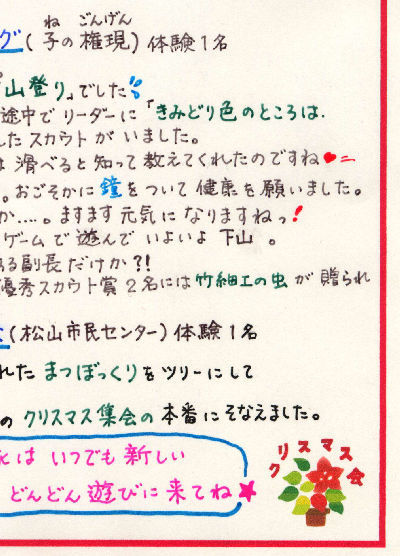 ね ごんげん
グ(子の権現)体験1名
山登り」でした
途中でリーダーに「きみどり色のところは.
したスカウトがいました。
は滑べると知って教えてくれたのですね
。おごそかに鐘をついて健康を願いました。
か….。ますます元気になりますねっ!
ゲームで遊んでいよいよ下山。
ある副長だけか?!
優秀スカウト賞2名には竹細工の虫が贈られ
(松山市民センター)体験1名
れたまつぼっくりをツリーにして
のクリスマス集会の本番にそなえました。
はいつでも新しい
どんどん遊びに来てね
クリスマス会